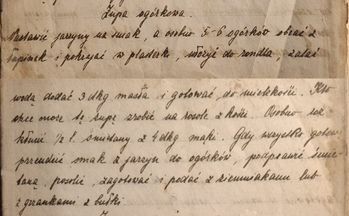 Zupa ogórkowa.
Nastawić jarzyny na smak, a osobno 5-6 ogórków obrać z
łupinek i pokrajać w plasterk, włożyć do rondla, zalać
wodą dodać 3 dkg masła i gotować do miękkości. Kto
chce może tę zupę zrobić na rosole z kości. Osobno roz
kłócić ½ l. śmietany z 4 dkg mąki. Gdy wszystko gotowe
przecedzić smak z jarzyn do ogórków, podprawić śmie-
taną, posolić, zagotować i podać z ziemniakami lub
z grzankami z bułki.